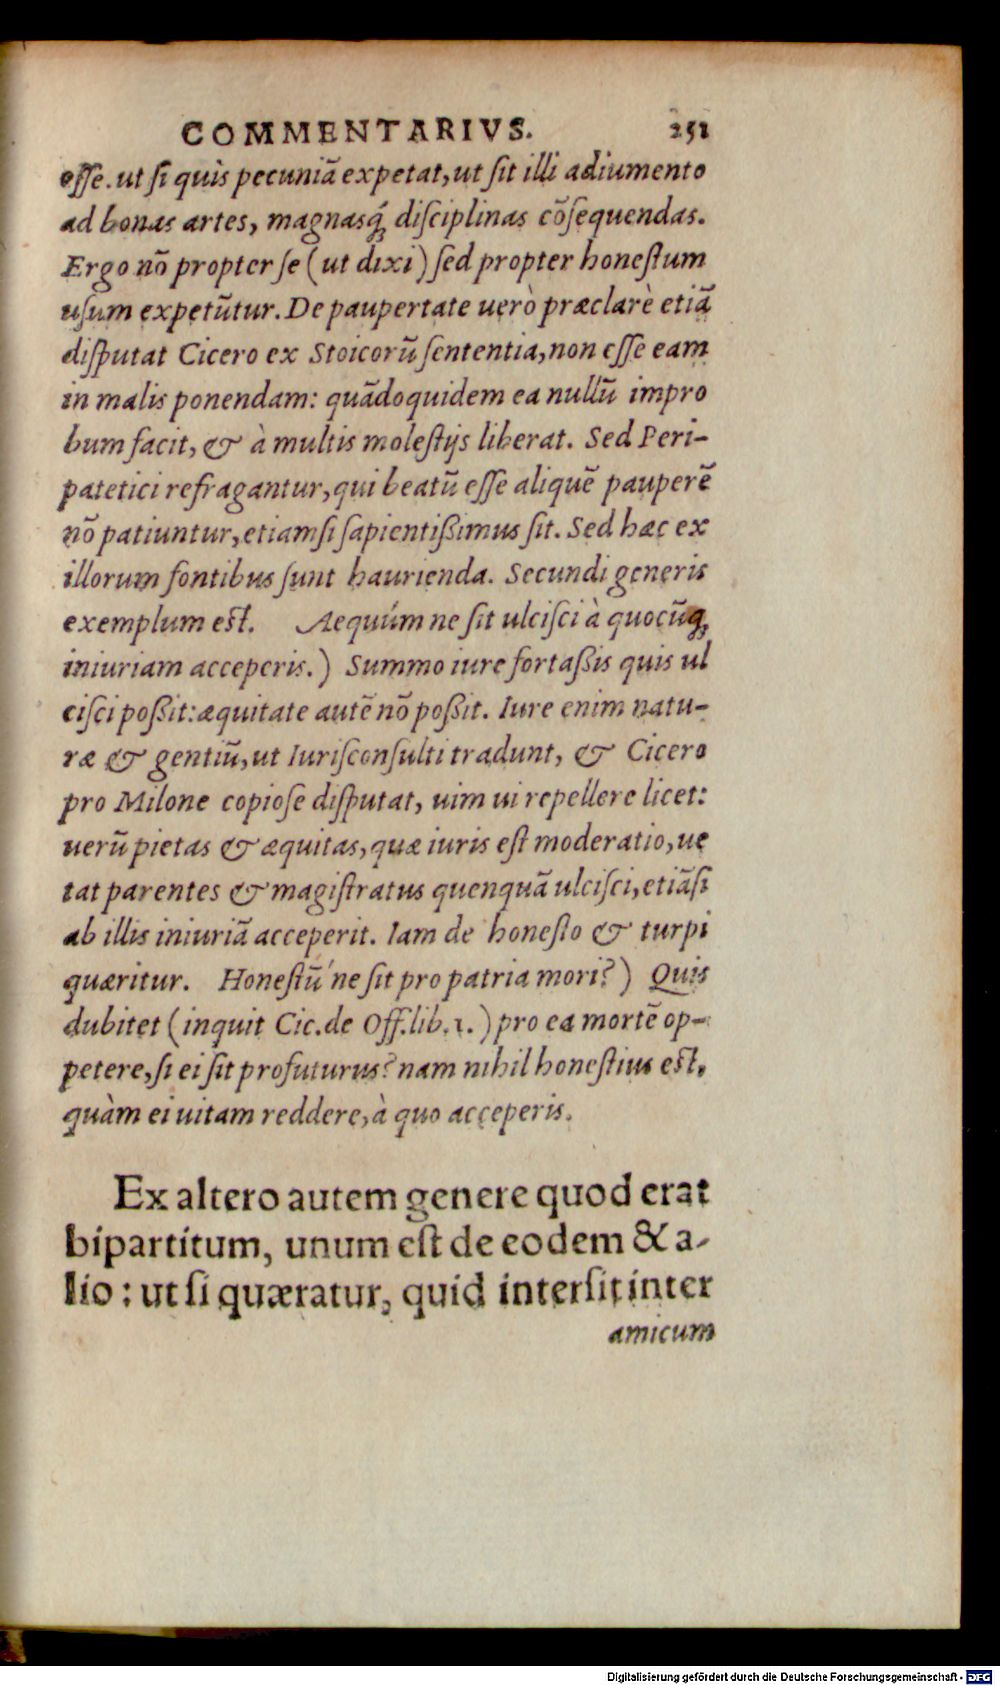 COMMENTARIVS. 251
esse. ut si quis pecuniā expetat, ut sit illi adiumento
ad bonas artes, magnasq́; disciplinas cōsequendas.
Ergo nō propter se (ut dixi) sed propter honestum
usum expetūtur. De paupertate uerò præclarè etiā
disputat Cicero ex Stoicorū sententia, non esse eam
in malis ponendam: quādoquidem ea nullū impro
bum facit, & à multis molestijs liberat. Sed Peri-
patetici refragantur, qui beatū esse aliquē pauperē
nō patiuntur, etiamsi sapientißimus sit. Sed hæc ex
illorum fontibus sunt haurienda. Secundi generis
exemplum est. Aequúm ne sit ulcisci à quocūq;
iniuriam acceperis.) Summo iure fortaßis quis ul
cisci poßit: æquitate autē nō poßit. Iure enim natu-
ræ & gentiū, ut Iurisconsulti tradunt, & Cicero
pro Milone copiose disputat, uim ui repellere licet:
uerū pietas & æquitas, quæ iuris est moderatio, ue
tat parentes & magistratus quenquā ulcisci, etiāsi
ab illis iniuriā acceperit. Iam de honesto & turpi
quæritur. Honestū́ ne sit pro patria mori?) Quis
dubitet (inquit Cic. de Off. lib. 1.) pro ea mortē op-
petere, si ei sit profuturus? nam nihil honestius est,
quàm ei uitam reddere, à quo acceperis.
Ex altero autem genere quod erat
bipartitum, unum est de eodem & a-
lio: ut si quæratur, quid intersit inter
amicum
Digitalisierung gefördert durch die Deutsche Forschungsgemeinschaft - DFG